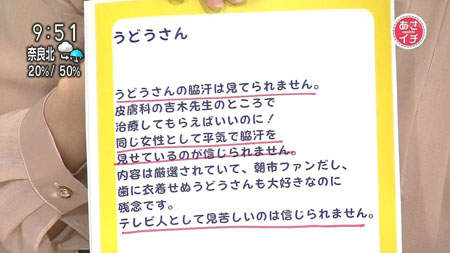 9:51
奈良北
20%/50%
あさイチ
うどうさん
うどうさんの脇汗は見てられません。
皮膚科の吉木先生のところで
治療してもらえばいいのに！
同じ女性として平気で脇汗を
見せているのが信じられません。
内容は厳選されていて、朝市ファンだし、
歯に衣着せぬうどうさんも大好きなのに
残念です。
テレビ人として見苦しいのは信じられません。